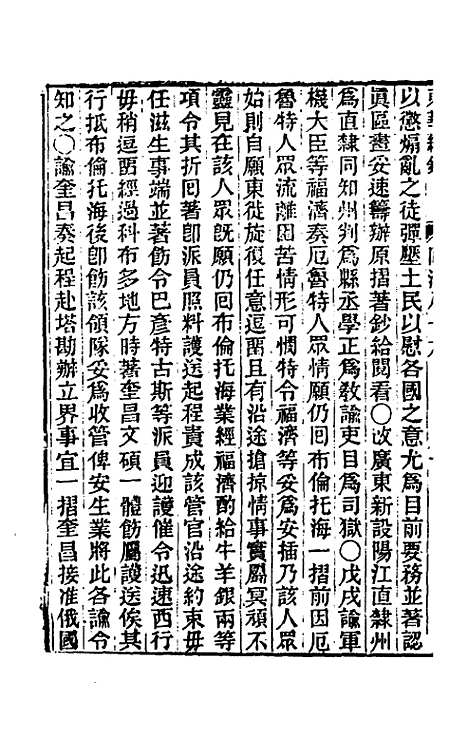 以懲煽亂之徒彈壓土民以慰各國之意尤爲目前要務並著認
眞區畫妥速籌辦原摺著鈔給閱看〇改廣東新設陽江直隸州
爲直隸同知州判爲縣丞學正爲敎諭吏目爲司獄〇戊戌諭軍
機大臣等福濟奏厄魯特人眾情願仍回布倫托海一摺前因厄
魯特人眾流離困苦情形可憫特令福濟等妥爲安插乃該人眾
始則自願東徙旋復任意逗畱且有沿途搶掠情事實屬冥頑不
靈見在該人眾旣願仍回布倫托海業經福濟酌給牛羊銀兩等
項令其折回著卽派員照料護送起程責成該管官沿途約束毋
任滋生事端並著飭令巴彥特古斯等派員迎護催令迅速西行
毋稍逗畱經過科布多地方時著奎昌文碩一體飭屬護送俟其
行抵布倫托海後卽飭該領隊妥爲收管俾安生業將此各諭令
知之〇諭奎昌奏起程赴塔勘辦立界事宜一摺奎昌接准俄國